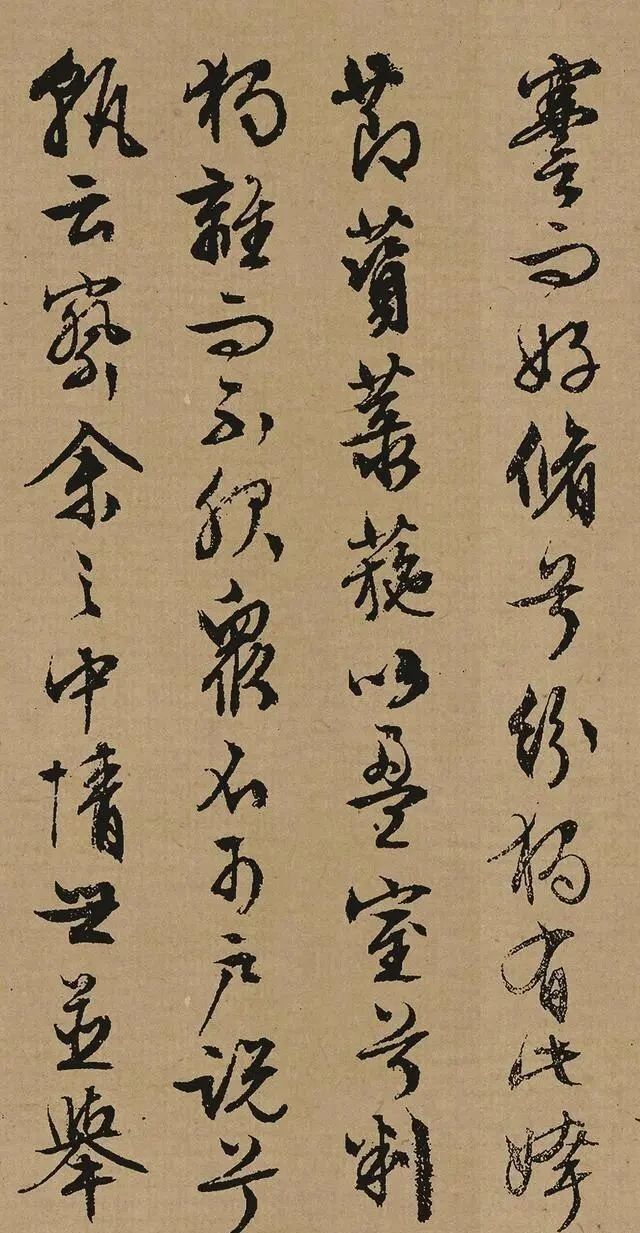 謇而好脩兮紛獨有此姱
節薋菉葹以盈室兮判
獨離而不服衆不可戶說兮
孰云察余之中情世並舉